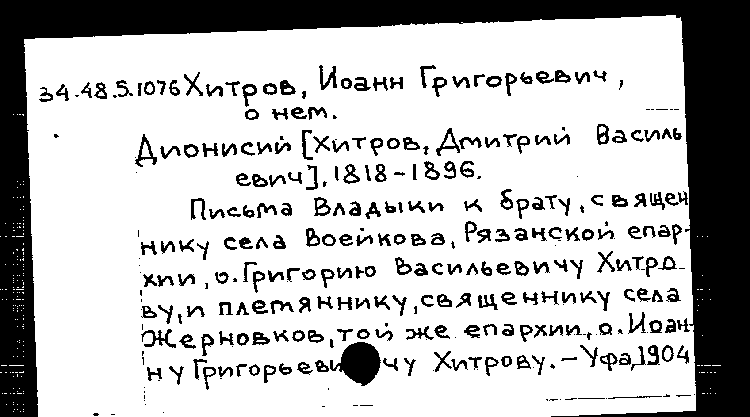 34.48.5.1076 Хитров, Иоанн Григорьевич,
о нем.
Дионисий [Хитров, Дмитрий Василь
евич], 1818-1896.
Письма Владыки к брату, священ
нику села Воейкова, Рязанской епар-
хии, о. Григорию Васильевичу Хитро
ву, и племяннику, священнику села
Жерновков, той же епархии, о. Иоан-
ну Григорьевичу Хитрову. – Уфа, 1904